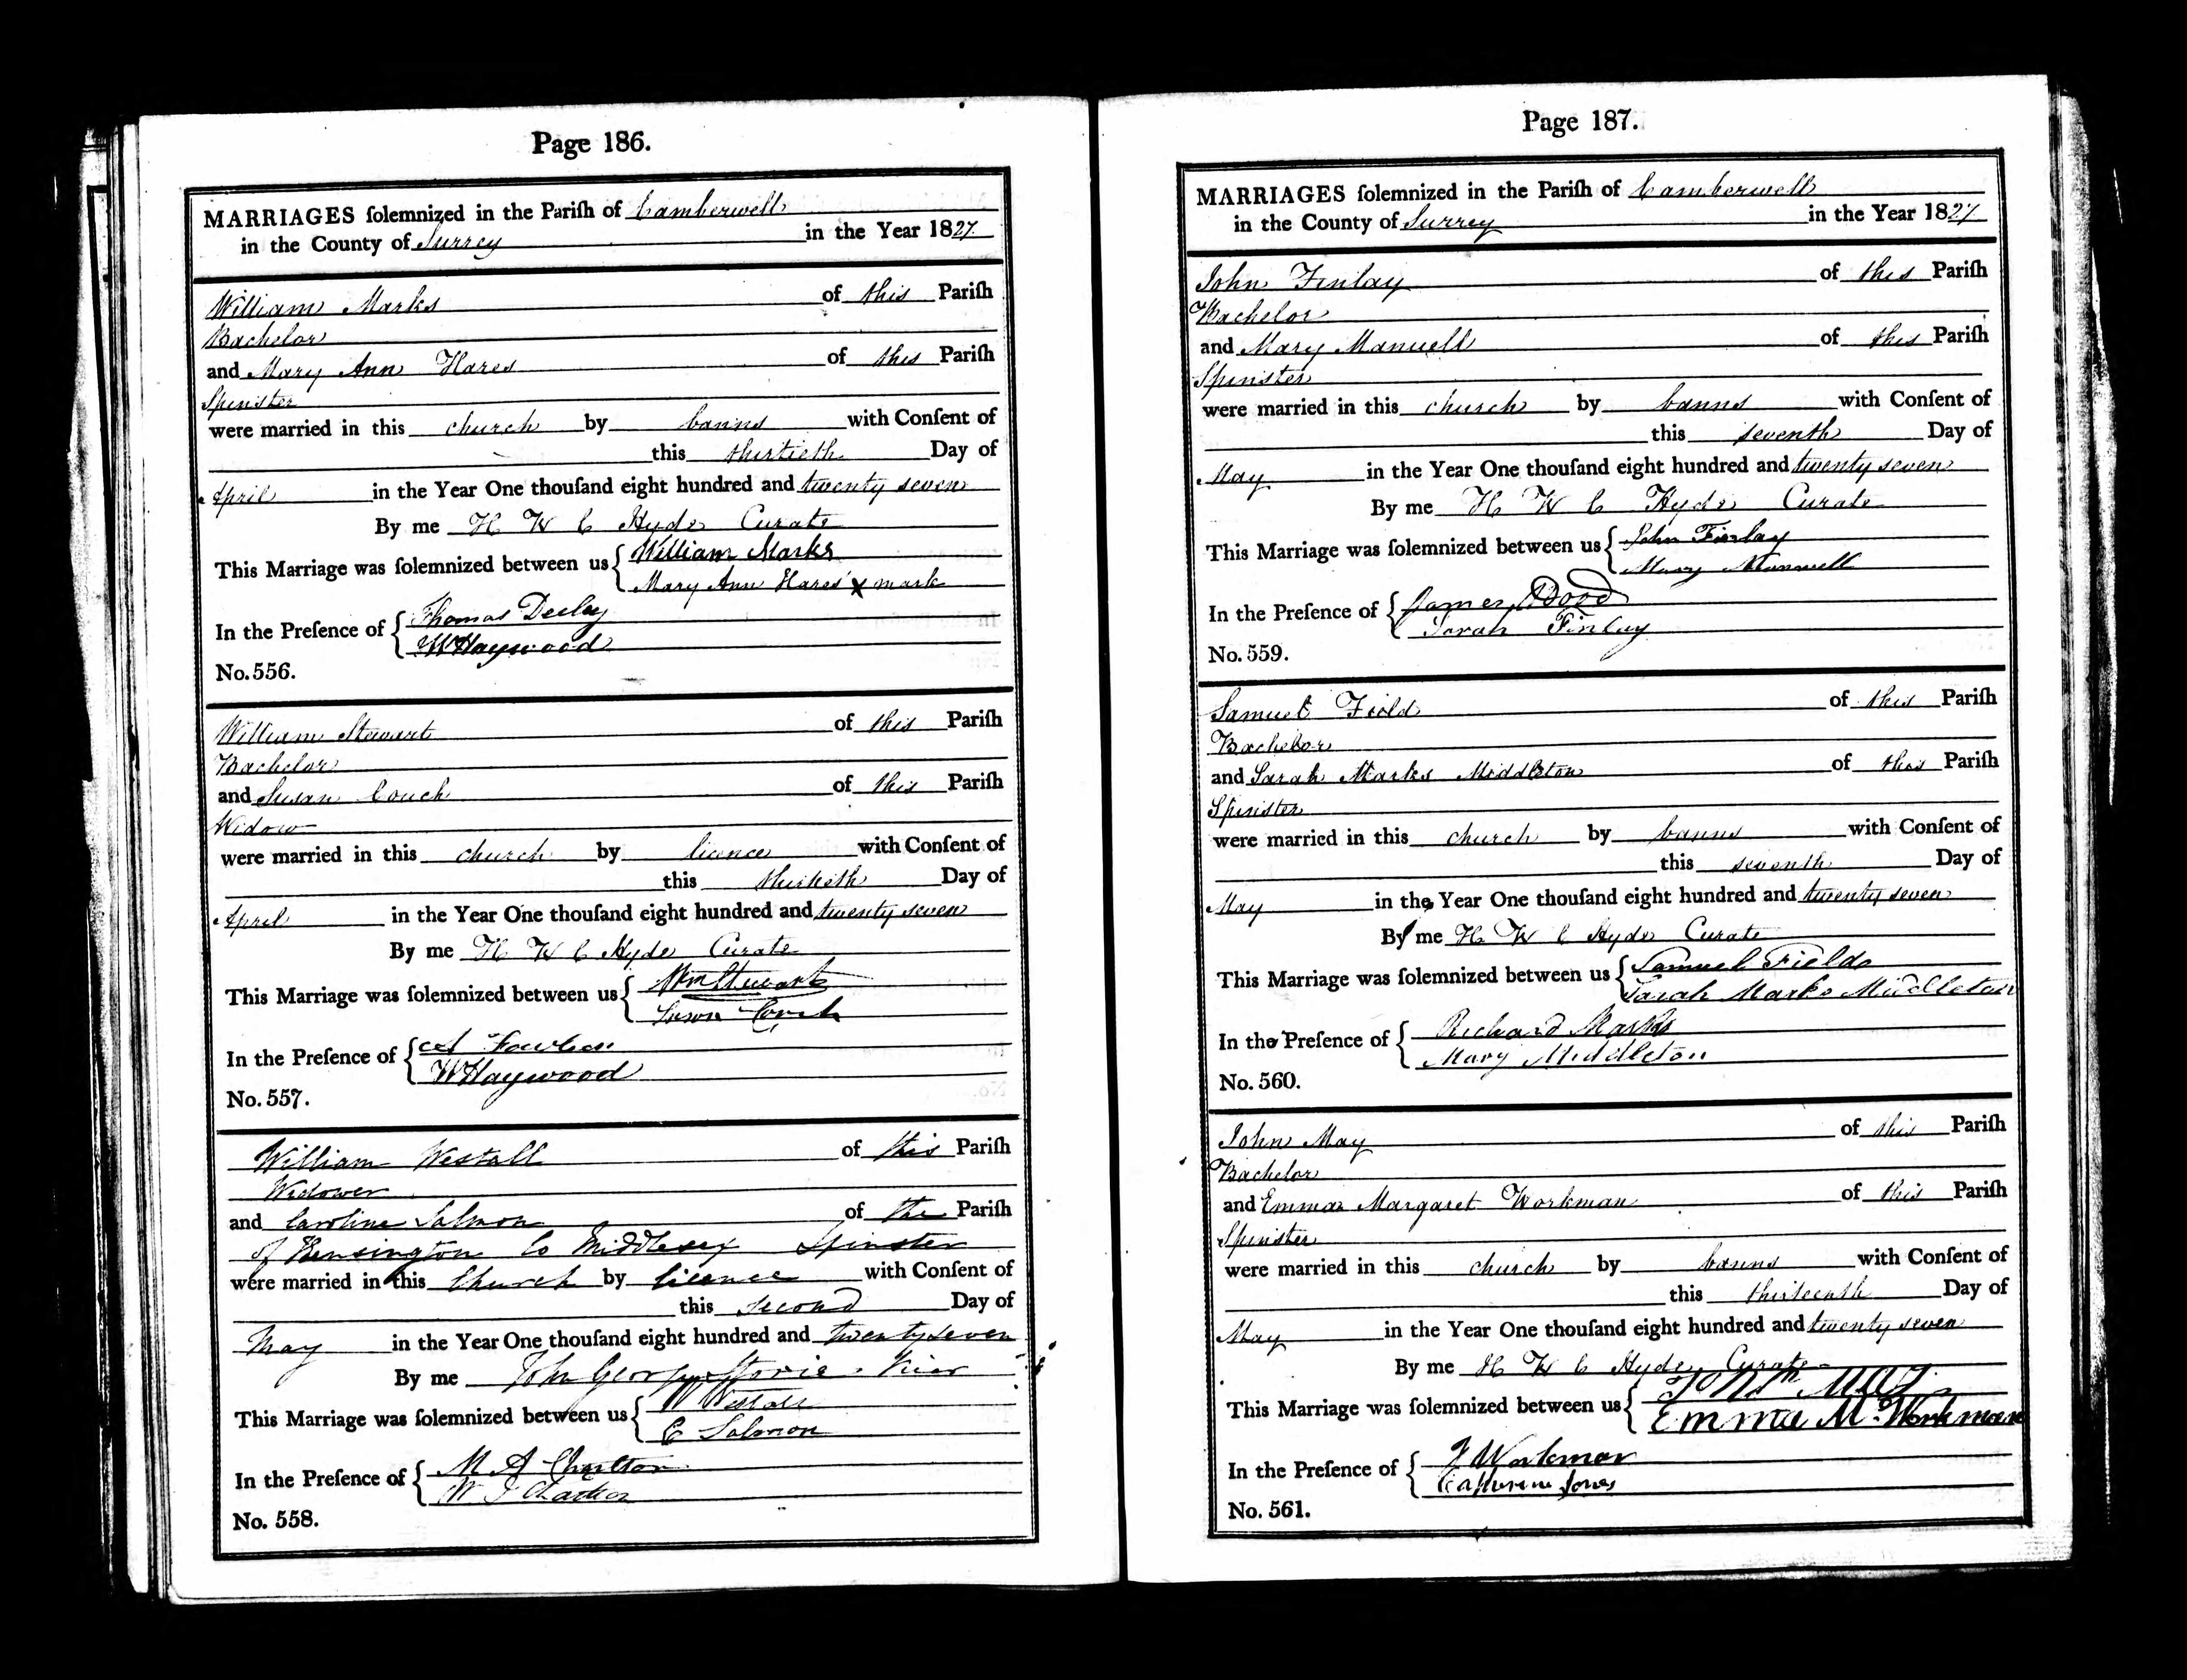 Page 186.
MARRIAGES ſolemnized in the Pariſh of Camberwell
in the County of Surrey in the Year 1827
William Marks of this Pariſh
Bachelor
and Mary Ann Hares of this Pariſh
Spinster
were married in this church by banns with Conſent of
this thirtieth Day of
April in the Year One thouſand eight hundred and twenty seven
By me H W C Hyde Curate
This Marriage was ſolemnized between us { William Marks
Mary Ann Hares' x mark
In the Preſence of { Thomas Deeley
W Haywood
No. 556.
William Stewart of this Pariſh
Bachelor
and Susan Couch of this Pariſh
Widow
were married in this church by licence with Conſent of
this thirtieth Day of
April in the Year One thouſand eight hundred and twenty seven
By me H W C Hyde Curate
This Marriage was ſolemnized between us { Wm Stewart
Susan Couch
In the Preſence of {
W Haywood
No. 557.
William Westall of this Pariſh
Widower
and Caroline Salmon of the Pariſh
of Kensington Co Middlesex Spinster
were married in this Church by licence with Conſent of
this second Day of
May in the Year One thouſand eight hundred and twenty seven
By me John George Storie Vicar
This Marriage was ſolemnized between us { W Westall
C Salmon
In the Preſence of { M A Charlton
W J Charlton
No. 558.
Page 187.
MARRIAGES ſolemnized in the Pariſh of Camberwell
in the County of Surrey in the Year 1827
John Finlay of this Pariſh
Bachelor
and Mary Manuell of this Pariſh
Spinster
were married in this church by banns with Conſent of
this seventh Day of
May in the Year One thouſand eight hundred and twenty seven
By me H W C Hyde Curate
This Marriage was ſolemnized between us { John Finlay
Mary Manuell
In the Preſence of { James Dodd
Sarah Finlay
No. 559.
Samuel Field of this Pariſh
Bachelor
and Sarah Marks Middleton of this Pariſh
Spinster
were married in this church by banns with Conſent of
this seventh Day of
May in the Year One thouſand eight hundred and twenty seven
By me H W C Hyde Curate
This Marriage was ſolemnized between us { Samuel Field
Sarah Marks Middleton
In the Preſence of { Richard Marks
Mary Middleton
No. 560.
John May of this Pariſh
Bachelor
and Emma Margaret Workman of this Pariſh
Spinster
were married in this church by banns with Conſent of
this thirteenth Day of
May in the Year One thouſand eight hundred and twenty seven
By me H W C Hyde Curate
This Marriage was ſolemnized between us { John May
Emma M Workman
In the Preſence of { J Workman
Catherine Jones
No. 561.